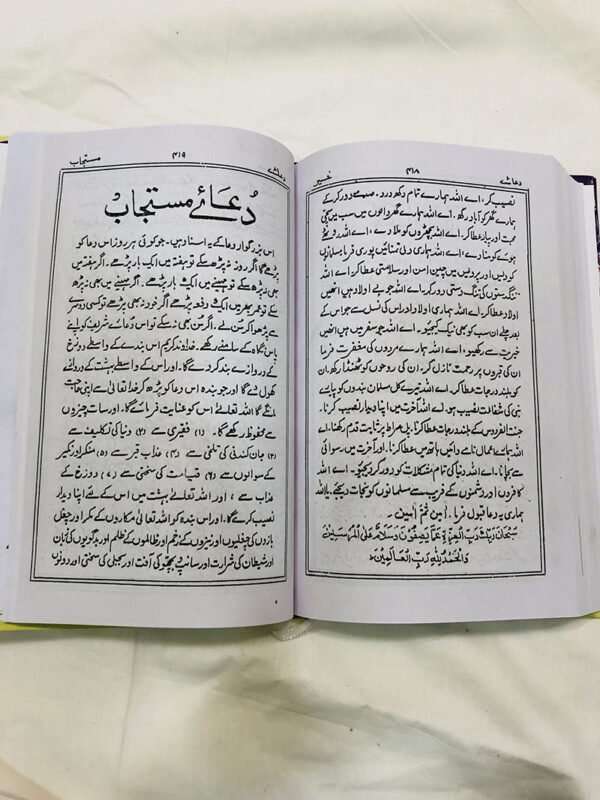 دعائے
۴۱۸
خسیر
نصیب کر۔ اے اللہ ہمارے تمام دکھ درد۔ صدمے دور کر کے
ہمارے گھر کو آباد رکھ۔ اے اللہ ہمارے گھر والوں میں سب میں سچی
محبت اور پیار عطا کر۔ اے اللہ بچھڑوں کو ملا دے، اے اللہ روٹھے
ہوئے کو منا دے، اے اللہ ہماری دلی تمنائیں پوری فرما مسلمانوں
کو دیس اور پردیس میں چین امن اور سلامتی عطا کر۔ اے اللہ
تنگدستوں کی تنگ دستی دور کر۔ اے اللہ جو بے اولاد ہیں انھیں
اولاد عطا کر۔ اے اللہ ہماری اولاد اور اس کی نسل سے جو اس کے
بعد چلے ان سب کو بھی نیک کیجیو۔ اے اللہ جو سفر میں ہیں انھیں
خیریت سے رکھیو۔ اے اللہ ہمارے مردوں کی مغفرت فرما
ان کی قبروں پر رحمت نازل کر۔ ان کی روحوں کو ٹھنڈا رکھ۔ ان
کو بلند درجات عطا کر۔ اے اللہ تیرے کل مسلمان بندوں کو پیارے
نبی کی شفاعت نصیب ہو۔ اے اللہ آخرت میں اپنا دیدار نصیب کرنا۔
جنت الفردوس کے بلند درجات عطا کرنا۔ پل صراط پر ثابت قدم رکھنا۔ اے
اللہ ہمارے اعمال نامے دائیں ہاتھ میں عطا کرنا۔ اور آخرت میں رسوائی
سے بچانا۔ اے اللہ دنیا کی تمام مشکلات کو دور کر دیجیو۔ اے اللہ
کافروں اور دشمنوں کے فریب سے مسلمانوں کو نجات دیجئے۔ یا اللہ
ہماری یہ دعا قبول فرما۔ اٰمین ثم اٰمین۔
سُبْحَانَ رَبِّكَ رَبِّ الْعِزَّةِ عَمَّا يَصِفُوْنَ وَسَلَامٌ عَلَى الْمُرْسَلِيْنَ
وَالْحَمْدُ لِلّٰهِ رَبِّ الْعَالَمِيْنَ
دعائے
۴۱۹
مستجاب
دُعَائے مستجاب
اس بزرگوار دعا کے یہ اسناد ہیں۔ جو کوئی ہر روز اس دعا کو
پڑھے گا اگر روز نہ پڑھ سکے تو ہفتہ میں ایک بار پڑھے۔ اگر ہفتہ میں
بھی نہ پڑھ سکے تو مہینے میں ایک بار پڑھے۔ اگر مہینے میں بھی نہ پڑھ
سکے تو عمر بھر میں ایک دفعہ پڑھے اگر خود نہ بھی پڑھے تو کسی دوسرے
سے پڑھوا کر سن لے۔ اگر سن بھی نہ سکے تو اس دعائے شریف کو اپنے
پاس نگاہ کے سامنے رکھے۔ خداوند کریم اس بندے کے واسطے دوزخ
کے دروازے بند کر دے گا۔ اور اس کے واسطے بہشت کے دروازے
کھول دے گا اور جو بندہ اس دعا کو پڑھ کر خدا تعالیٰ سے اپنی حاجت
مانگے گا اللہ تعالےٰ اس کو عنایت فرمائے گا۔ اور سات چیزوں
سے محفوظ رکھے گا۔ (۱) فقیری سے (۲) دنیا کی تکلیف سے
(۳) جان کندنی کی تلخی سے (۴) عذاب قبر سے (۵) منکر اور نکیر
کے سوالوں سے (۶) قیامت کی سختی سے (۷) دوزخ کے
عذاب سے، اور اللہ تعالےٰ بہشت میں اس کے لئے اپنا دیدار
نصیب کرے گا۔ اور اس بندہ کو اللہ تعالیٰ مکاروں کے مکر اور چغل
بازوں کی چغلیوں اور نیزوں کے زخم اور ظالموں کے ظلم اور بدگویوں کی زبان
اور شیطان کی شرارت اور سانپ و بچھو کی آفت اور بجلی کی سختی اور دونوں